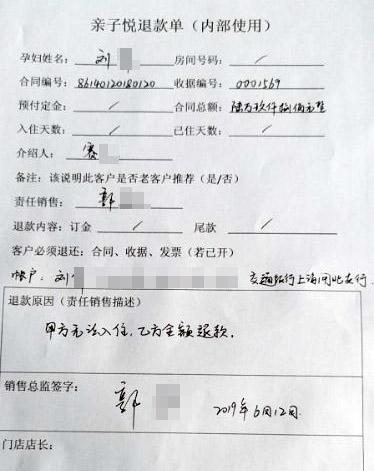 亲子悦退款单（内部使用）
孕妇姓名：刘 房间号码：/
合同编号：86140120180120 收据编号：0001569
预付定金：/ 合同总额：陆万玖仟捌佰元整
入住天数：/ 已住天数：/
介绍人：赛
备注：该说明此客户是否老客户推荐（是/否）
责任销售：郭
退款内容：订金 / 尾款 /
客户必须退还：合同、收据、发票（若已开）
帐户：刘 交通银行上海闵北支行.
退款原因（责任销售描述）
甲方无法入住，乙方全额退款。
销售总监签字：郭 2019年6月12日.
门店店长：